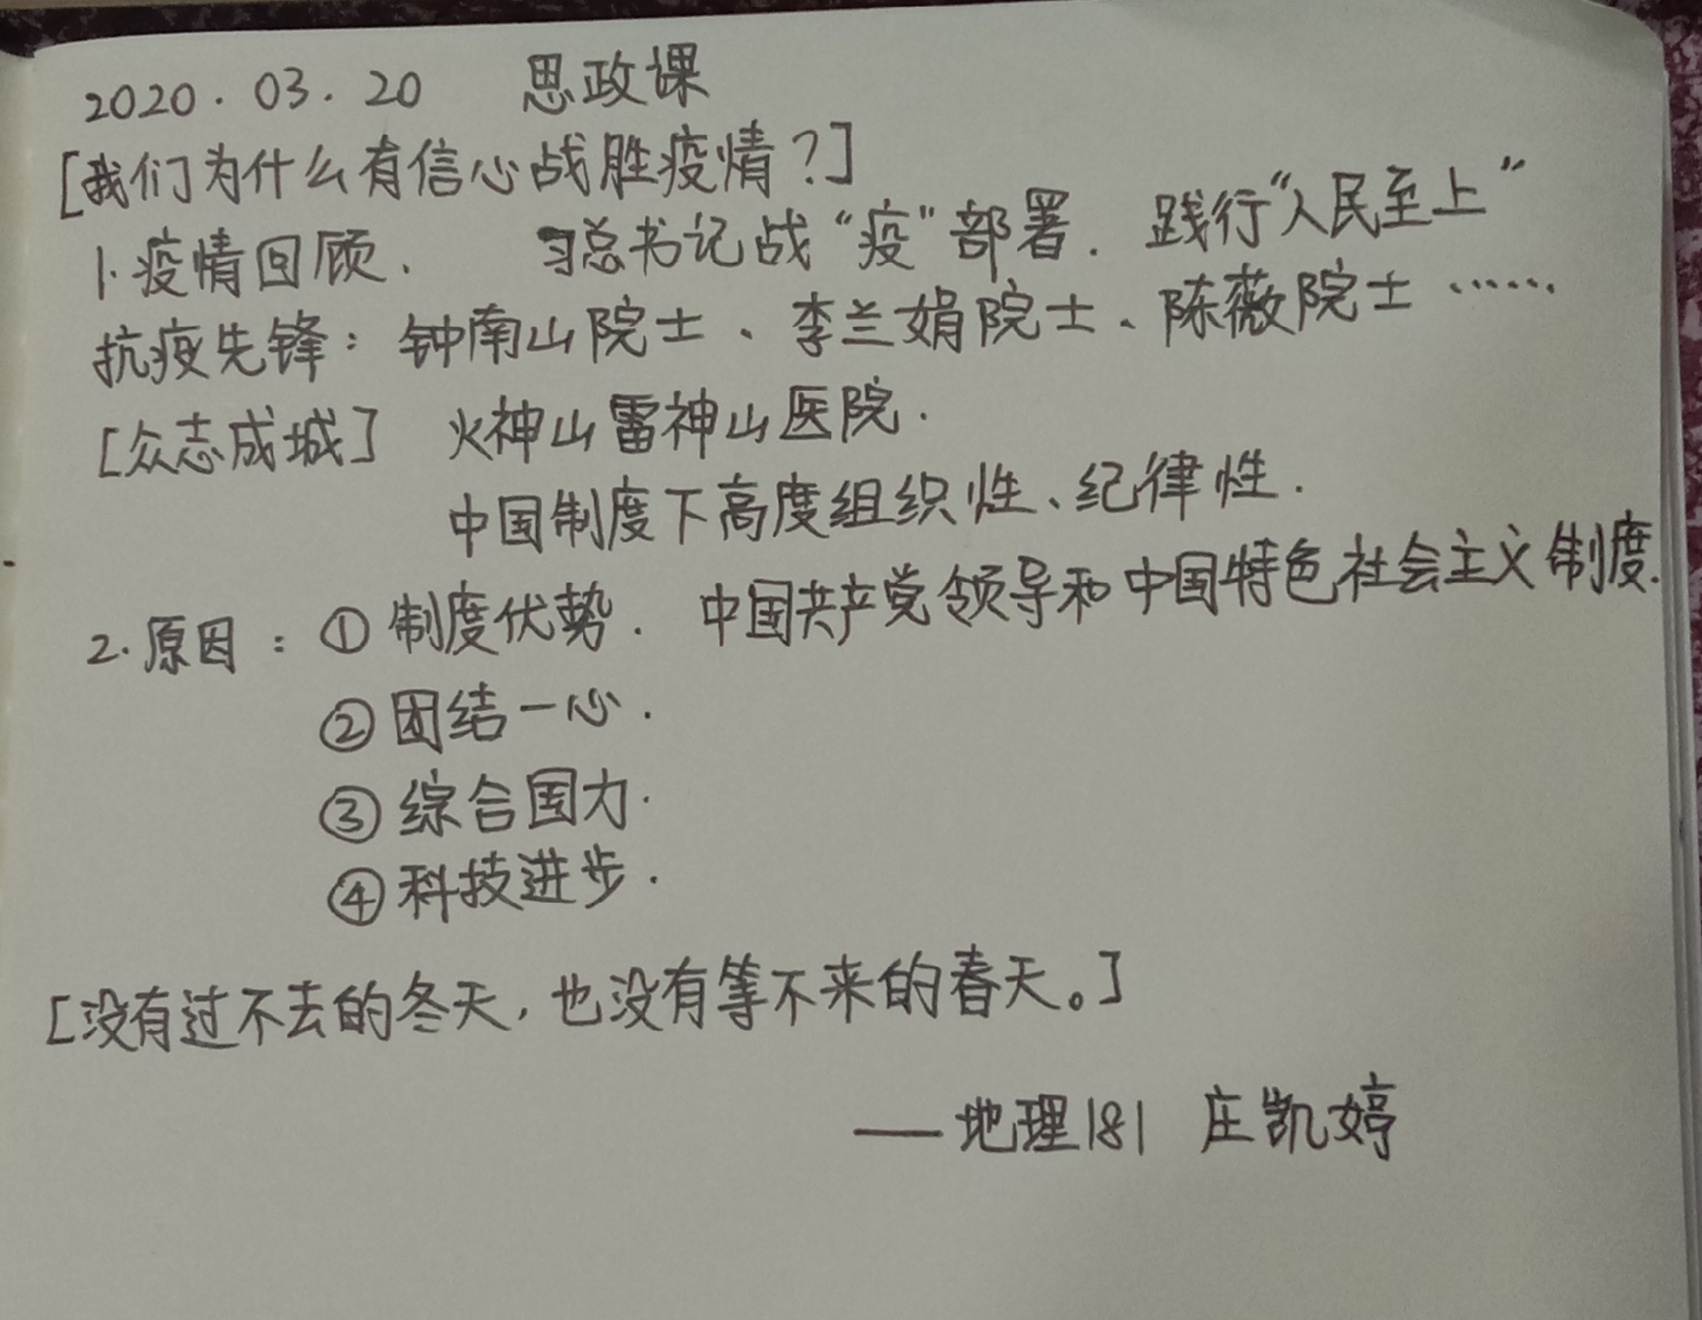 2020.03.20 思政课
[我们为什么有信心战胜疫情？]
1.疫情回顾. 习总书记战“疫”部署. 践行“人民至上”
抗疫先锋：钟南山院士、李兰娟院士、陈薇院士……
[众志成城] 火神山雷神山医院.
中国制度下高度组织性、纪律性.
2.原因：①制度优势. 中国共产党领导和中国特色社会主义制度.
②团结一心.
③综合国力.
④科技进步.
[没有过不去的冬天，也没有等不来的春天。]
——地理181 庄凯婷